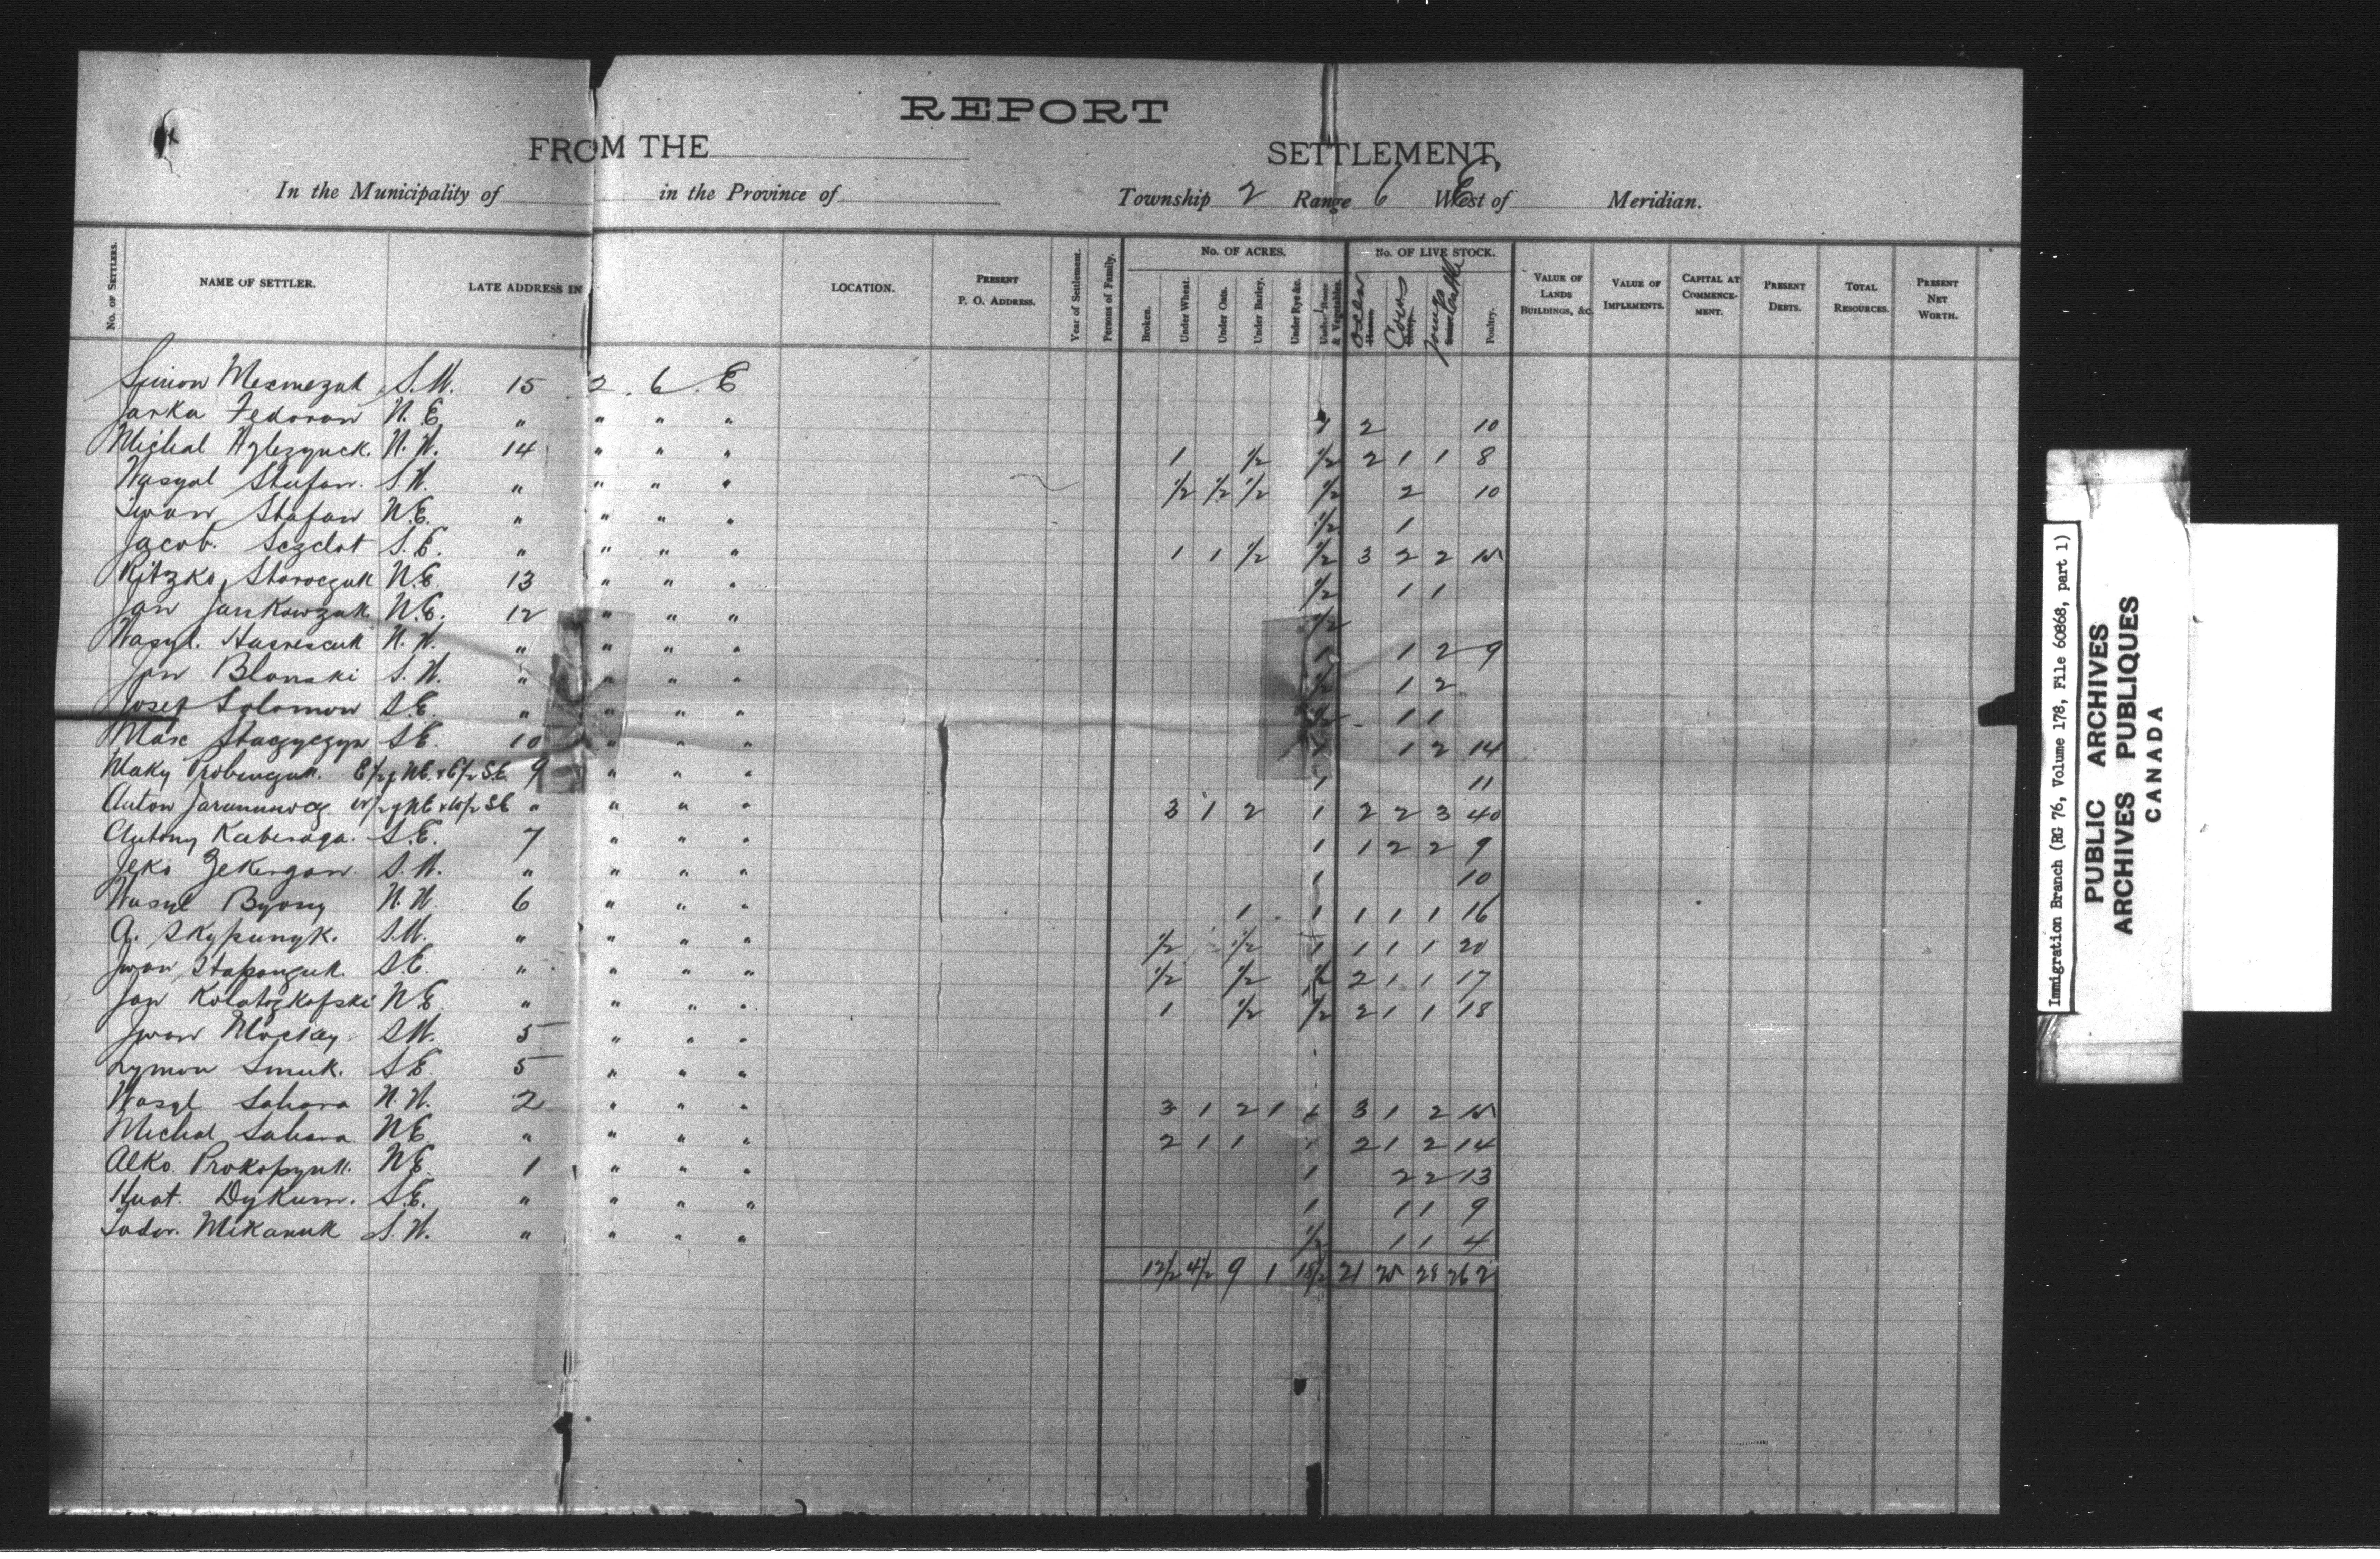 REPORT
FROM THE SETTLEMENT,
In the Municipality of in the Province of Township 2 Range 6 West of E Meridian.
No. OF SETTLERS. NAME OF SETTLER. LATE ADDRESS IN LOCATION. PRESENT P. O. ADDRESS. Year of Settlement. Persons of Family. No. OF ACRES. Broken. Under Wheat. Under Oats. Under Barley. Under Rye &c. Under Roots & Vegetables. No. OF LIVE STOCK. Oxen Cows Young Cattle Poultry. VALUE OF LANDS BUILDINGS, &C. VALUE OF IMPLEMENTS. CAPITAL AT COMMENCEMENT. PRESENT DEBTS. TOTAL RESOURCES. PRESENT NET WORTH.
Simon S.W. 15 2 6 E
Jarka Fedoran N.E. " " " " 2 10
Michal N.W. 14 " " " 1 1/2 1/2 2 1 1 8
Wasyal Stefan. S.W. " " " " 1/2 1/2 1/2 1/2 2 10
Iwan Stafan N.E. " " " " 1/2 1
Jacob. Sczclot S.E. " " " " 1 1 1/2 1/2 3 2 2 15
Ritzko Storoczuk N.E. 13 " " " 1/2 1 1
Jan Jankowzuk N.E. 12 " " " 1/2
Wasyl. N.W. " " " " 1 1 2 9
Jan Blonski S.W. " " " " 1/2 1 2
Josef Solomon S.E. " " " " 1/2 1 1
Marc S.E. 10 " " " 1 1 2 14
Maky E 1/2 of N.E. & E 1/2 S.E. 9 " " " 1 11
Anton W 1/2 of N.E. & W 1/2 S.E. " " " " 3 1 2 1 2 2 3 40
Antony Kaberaga. S.E. 7 " " " 1 1 2 2 9
Jeko S.W. " " " " 1 10
Wasyl Byony N.W. 6 " " " 1 1 1 1 1 16
A. Skypunyk. S.W. " " " " 1/2 1/2 1 1 1 1 20
Iwan Staponguk. S.E. " " " " 1/2 1/2 1/2 2 1 1 17
Jan N.E. " " " " 1 1/2 1/2 2 1 1 18
Iwan S.W. 5 " " "
Symon Smuk. S.E. 5 " " "
Wasyl Sahara N.W. 2 " " " 3 1 2 1 1 3 1 2 15
Michal Sahara N.E. " " " " 2 1 1 1 2 1 2 14
Alko. Prokopyuk. N.E. 1 " " " 1 2 2 13
Dykum. S.E. " " " " 1 1 1 9
Todor. Mikanuk S.W. " " " " 1/2 1 1 4
12 1/2 4 1/2 9 1 18 1/2 21 25 28 262
Immigration Branch (RG 76, Volume 178, File 60868, part 1)
PUBLIC ARCHIVES
ARCHIVES PUBLIQUES
CANADA